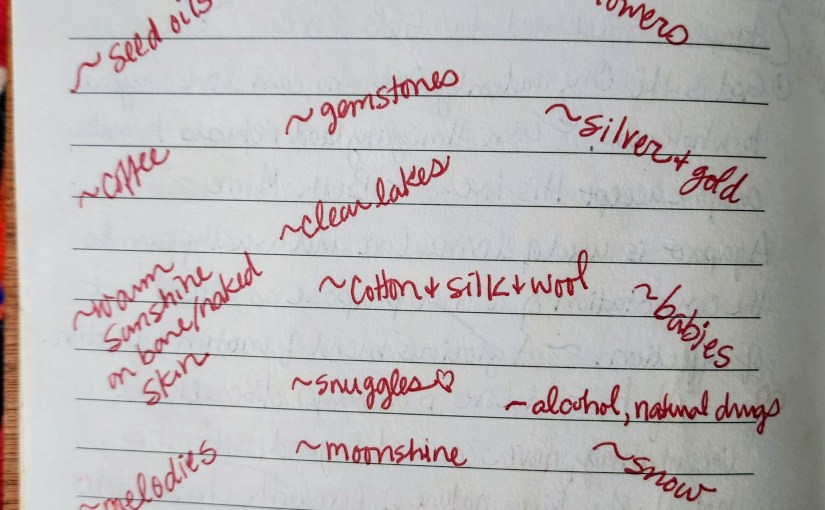 ~seed oils
~gemstones
~silver + gold
~coffee
~clear lakes
~warm
sunshine
on bare/naked
skin
~cotton + silk + wool
~babies
~snuggles♡
~alcohol, natural drugs
~moonshine
~snow
~melodies